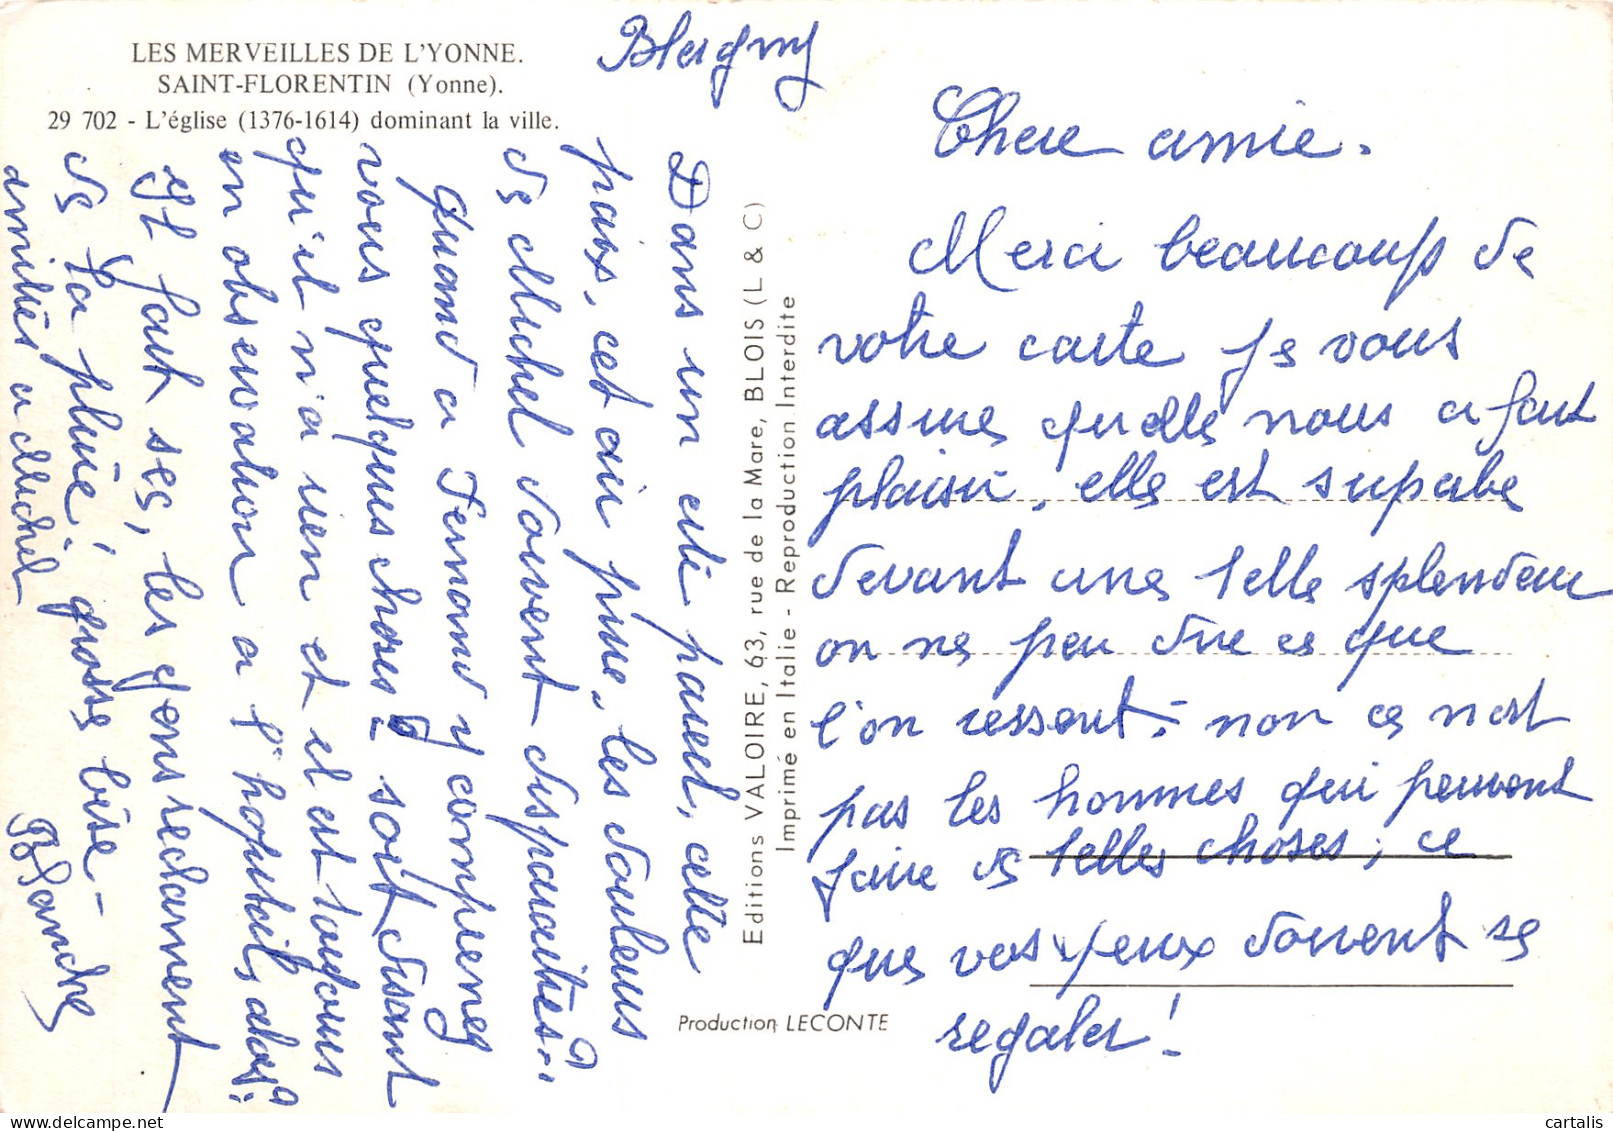 LES MERVEILLES DE L'YONNE.
SAINT-FLORENTIN (Yonne).
29 702 - L'église (1376-1614) dominant la ville.
Bleigny
Chere amie.
Merci beaucoup de
votre carte je vous
assure quelle nous a fait
plaisir, elle est supabe
devant une telle splendeur
on ne peu dire ce que
l'on ressent : non ce n'est
pas les hommes qui peuvent
faire de telles choses, ce
que vos yeux doivent se
regaler !
Dans un coté pareil, cette
paix, cet air pure, les douleurs
de Michel doivent disparaitre..?
quand a Fernand y comprenez
vous quelques choses - soit disant
qu'il n'a rien et il est toujours
en observation a l'hopital, alors ?
Il fait sec, les gens reclament
de la pluie ! grosse bise -
amitiés a Michel
Blanche
Editions VALOIRE, 63, rue de la Mare, BLOIS (L & C)
Imprimé en Italie - Reproduction Interdite
Production LECONTE
cartalis